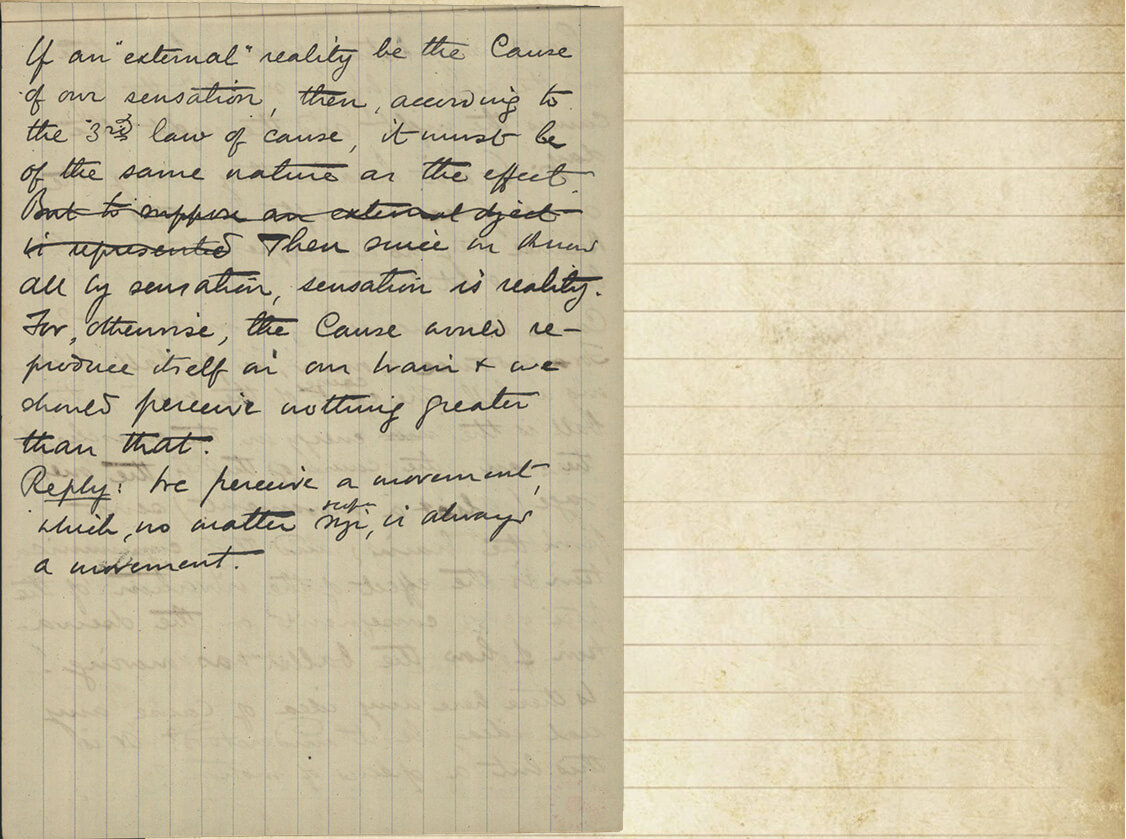 If an "external" reality be the Cause
of our sensation, then, according to
the "3rd law of cause, it must be
of the same nature as the effect.
But to suppose an external object
is represented Then since we know
all by sensation, sensation is reality.
For, otherwise, the Cause would re-
produce itself in our brain & we
should perceive nothing greater
than that.
Reply: We perceive a movement,
which, no matter, is always
a movement.